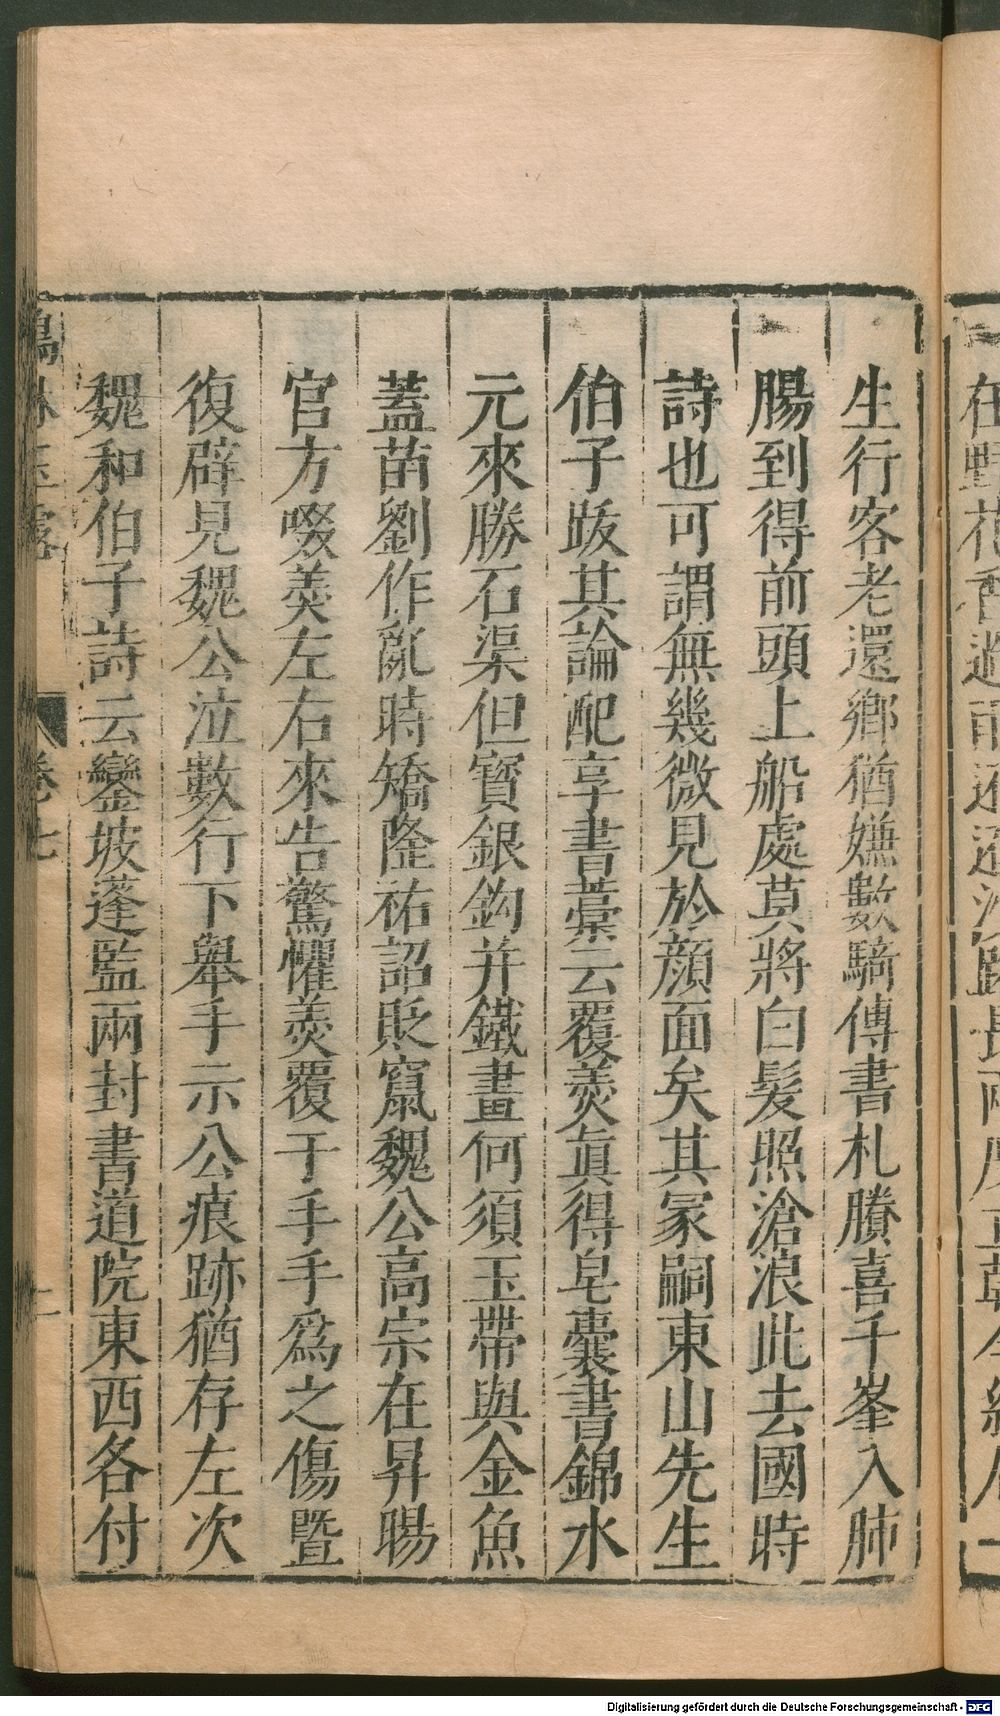 生行客老還鄉猶嫌數騎傳書札賸喜千峯入肺
腸到得前頭上船處莫將白髮照滄浪此去國時
詩也可謂無幾微見於顏面矣其冢嗣東山先生
伯子䟦其論配享書藁云覆羮眞得皂囊書錦水
元來勝石渠但寶銀鈎并鐵畫何須玉帶與金魚
蓋苗劉作亂時矯隆祐詔貶竄魏公高宗在昇暘
官方啜羮左右來告驚懼羮覆于手手爲之傷曁
復辟見魏公泣數行下舉手示公痕跡猶存左次
魏和伯子詩云鑾坡蓬監兩封書道院東西各付
卷七
二
Digitalisierung gefördert durch die Deutsche Forschungsgemeinschaft - DFG